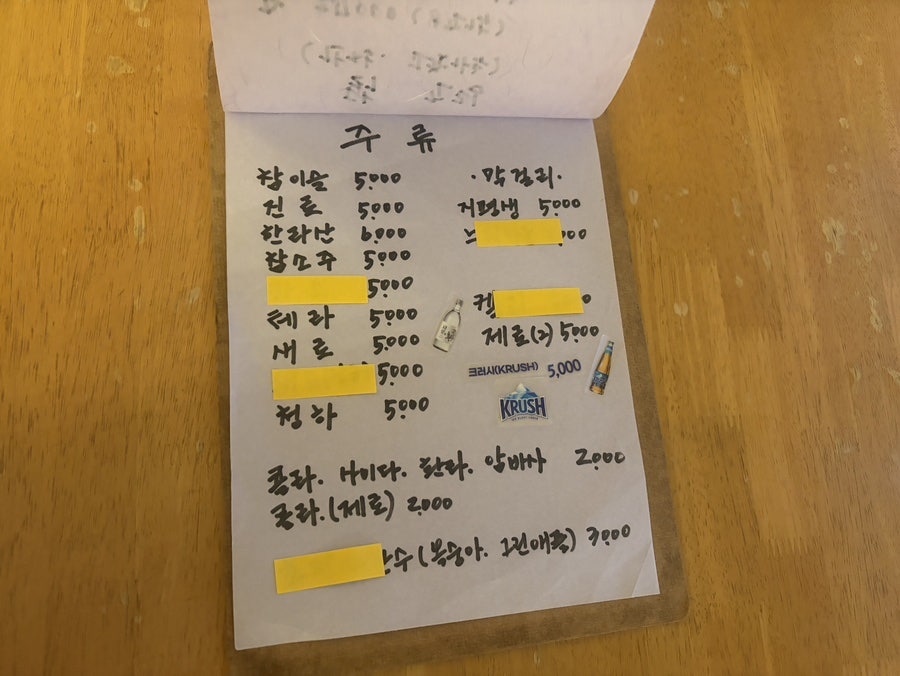 주 류
참이슬 5.000
진로 5.000
한라산 6.000
참소주 5.000
5.000
테라 5.000
새로 5.000
5.000
청하 5.000
·막걸리·
지평생 5.000
00
0
제로(2) 5.000
크러시(KRUSH) 5,000
KRUSH
콜라. 사이다. 환타. 암바사 2.000
콜라.(제로) 2.000
수(복숭아. 그린애플) 3.000